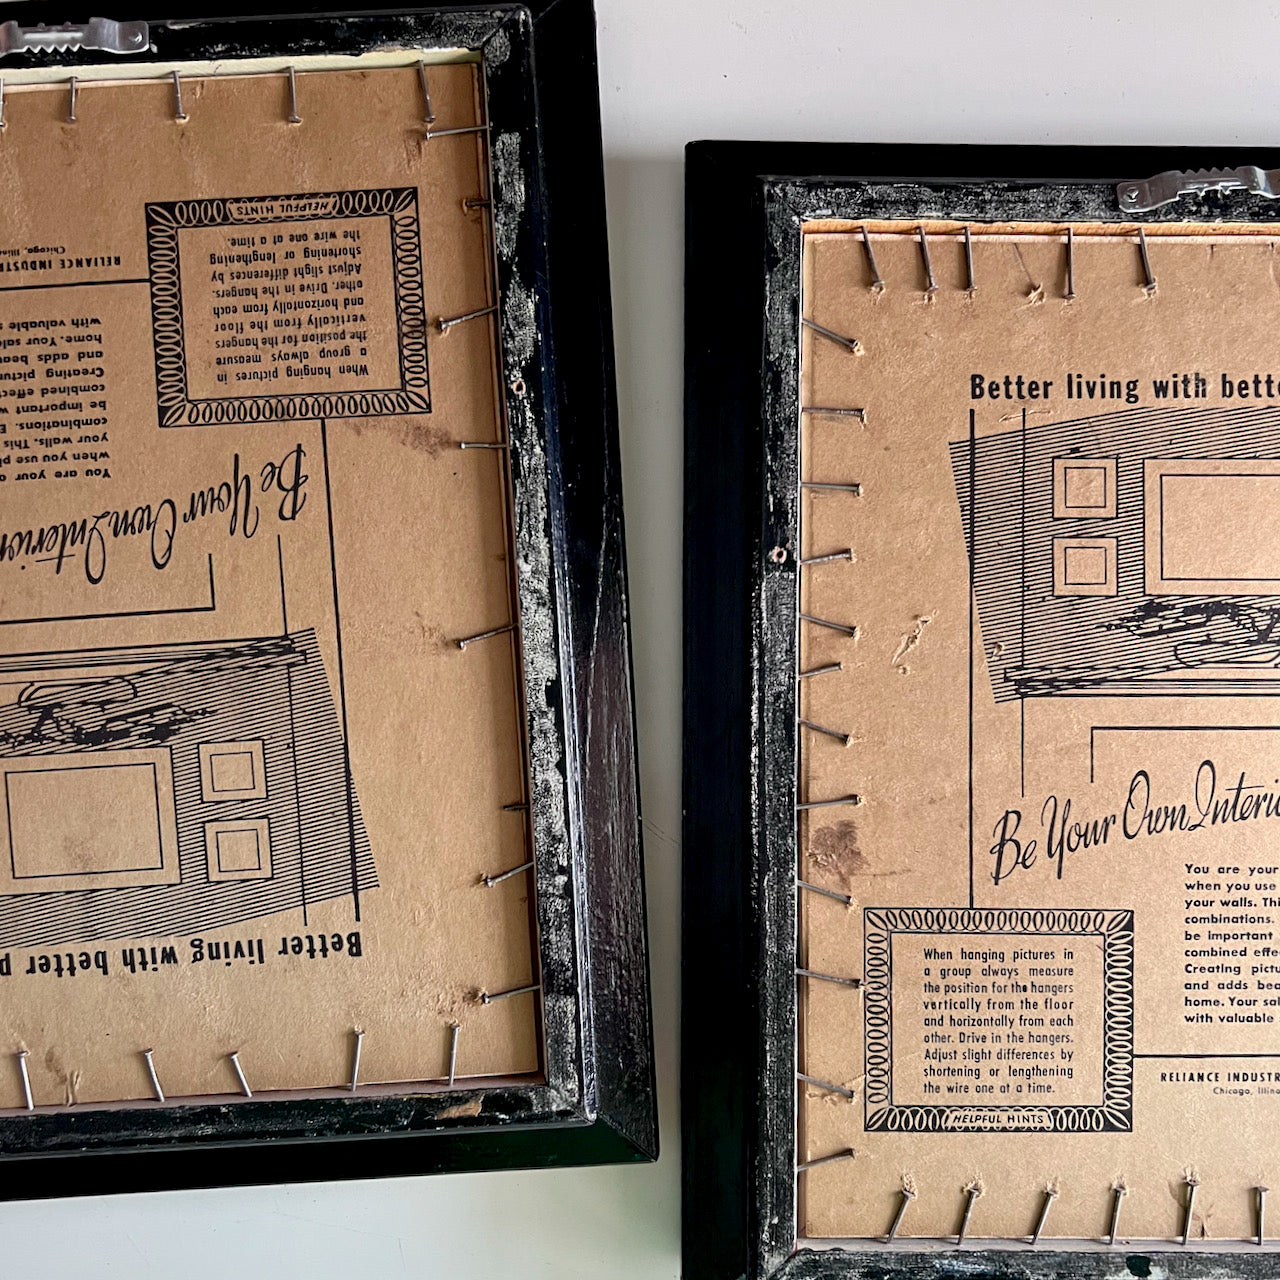 Better living with better p
Be Your Own Interior
You are your o
when you use pl
your walls. This
combinations. E
be important w
combined effec
Creating pictur
and adds beau
home. Your sale
with valuable s
RELIANCE INDUSTR
Chicago, Illin
When hanging pictures in
a group always measure
the position for the hangers
vertically from the floor
and horizontally from each
other. Drive in the hangers.
Adjust slight differences by
shortening or lengthening
the wire one at a time.
HELPFUL HINTS
Better living with bette
Be Your Own Interi
You are your
when you use
your walls. Thi
combinations.
be important
combined effe
Creating pictu
and adds bea
home. Your sal
with valuable
When hanging pictures in
a group always measure
the position for the hangers
vertically from the floor
and horizontally from each
other. Drive in the hangers.
Adjust slight differences by
shortening or lengthening
the wire one at a time.
HELPFUL HINTS
RELIANCE INDUSTR
Chicago, Illino